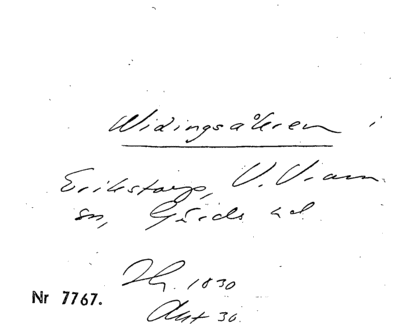 Widingsåkren i
Erikstorp, V. Vram
sn, Gärds hd
Nr 7767.
1830
Akt 30.